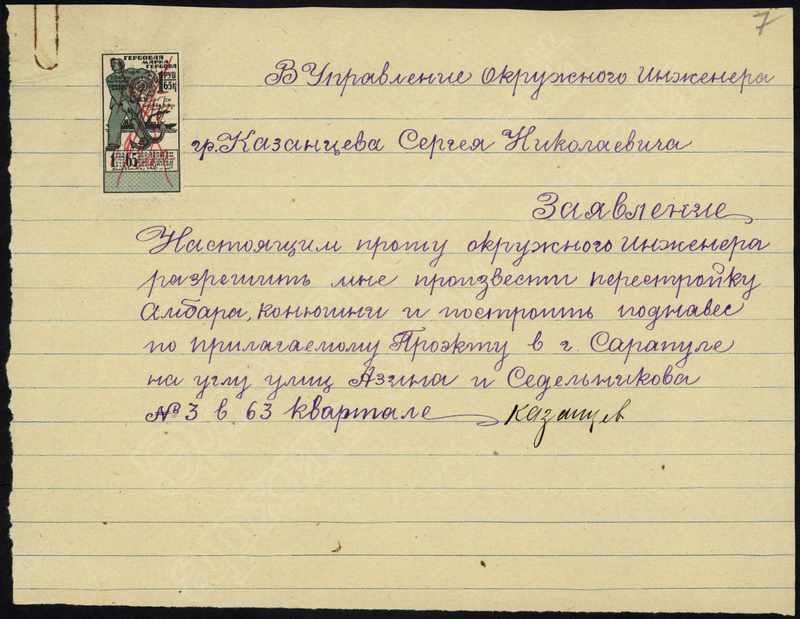 7
ГЕРБОВАЯ
МАРКА
В Управление Окружного Инженера
гр. Казанцева Сергея Николаевича
1 65
Заявление
Настоящим прошу окружного Инженера
разрешить мне произвести перестройку
Амбара, конюшни и построить поднавес
по прилагаемому Проэкту в г. Сарапуле
на углу улиц Азина и Седельникова
№ 3 в 63 квартале
Казанцев